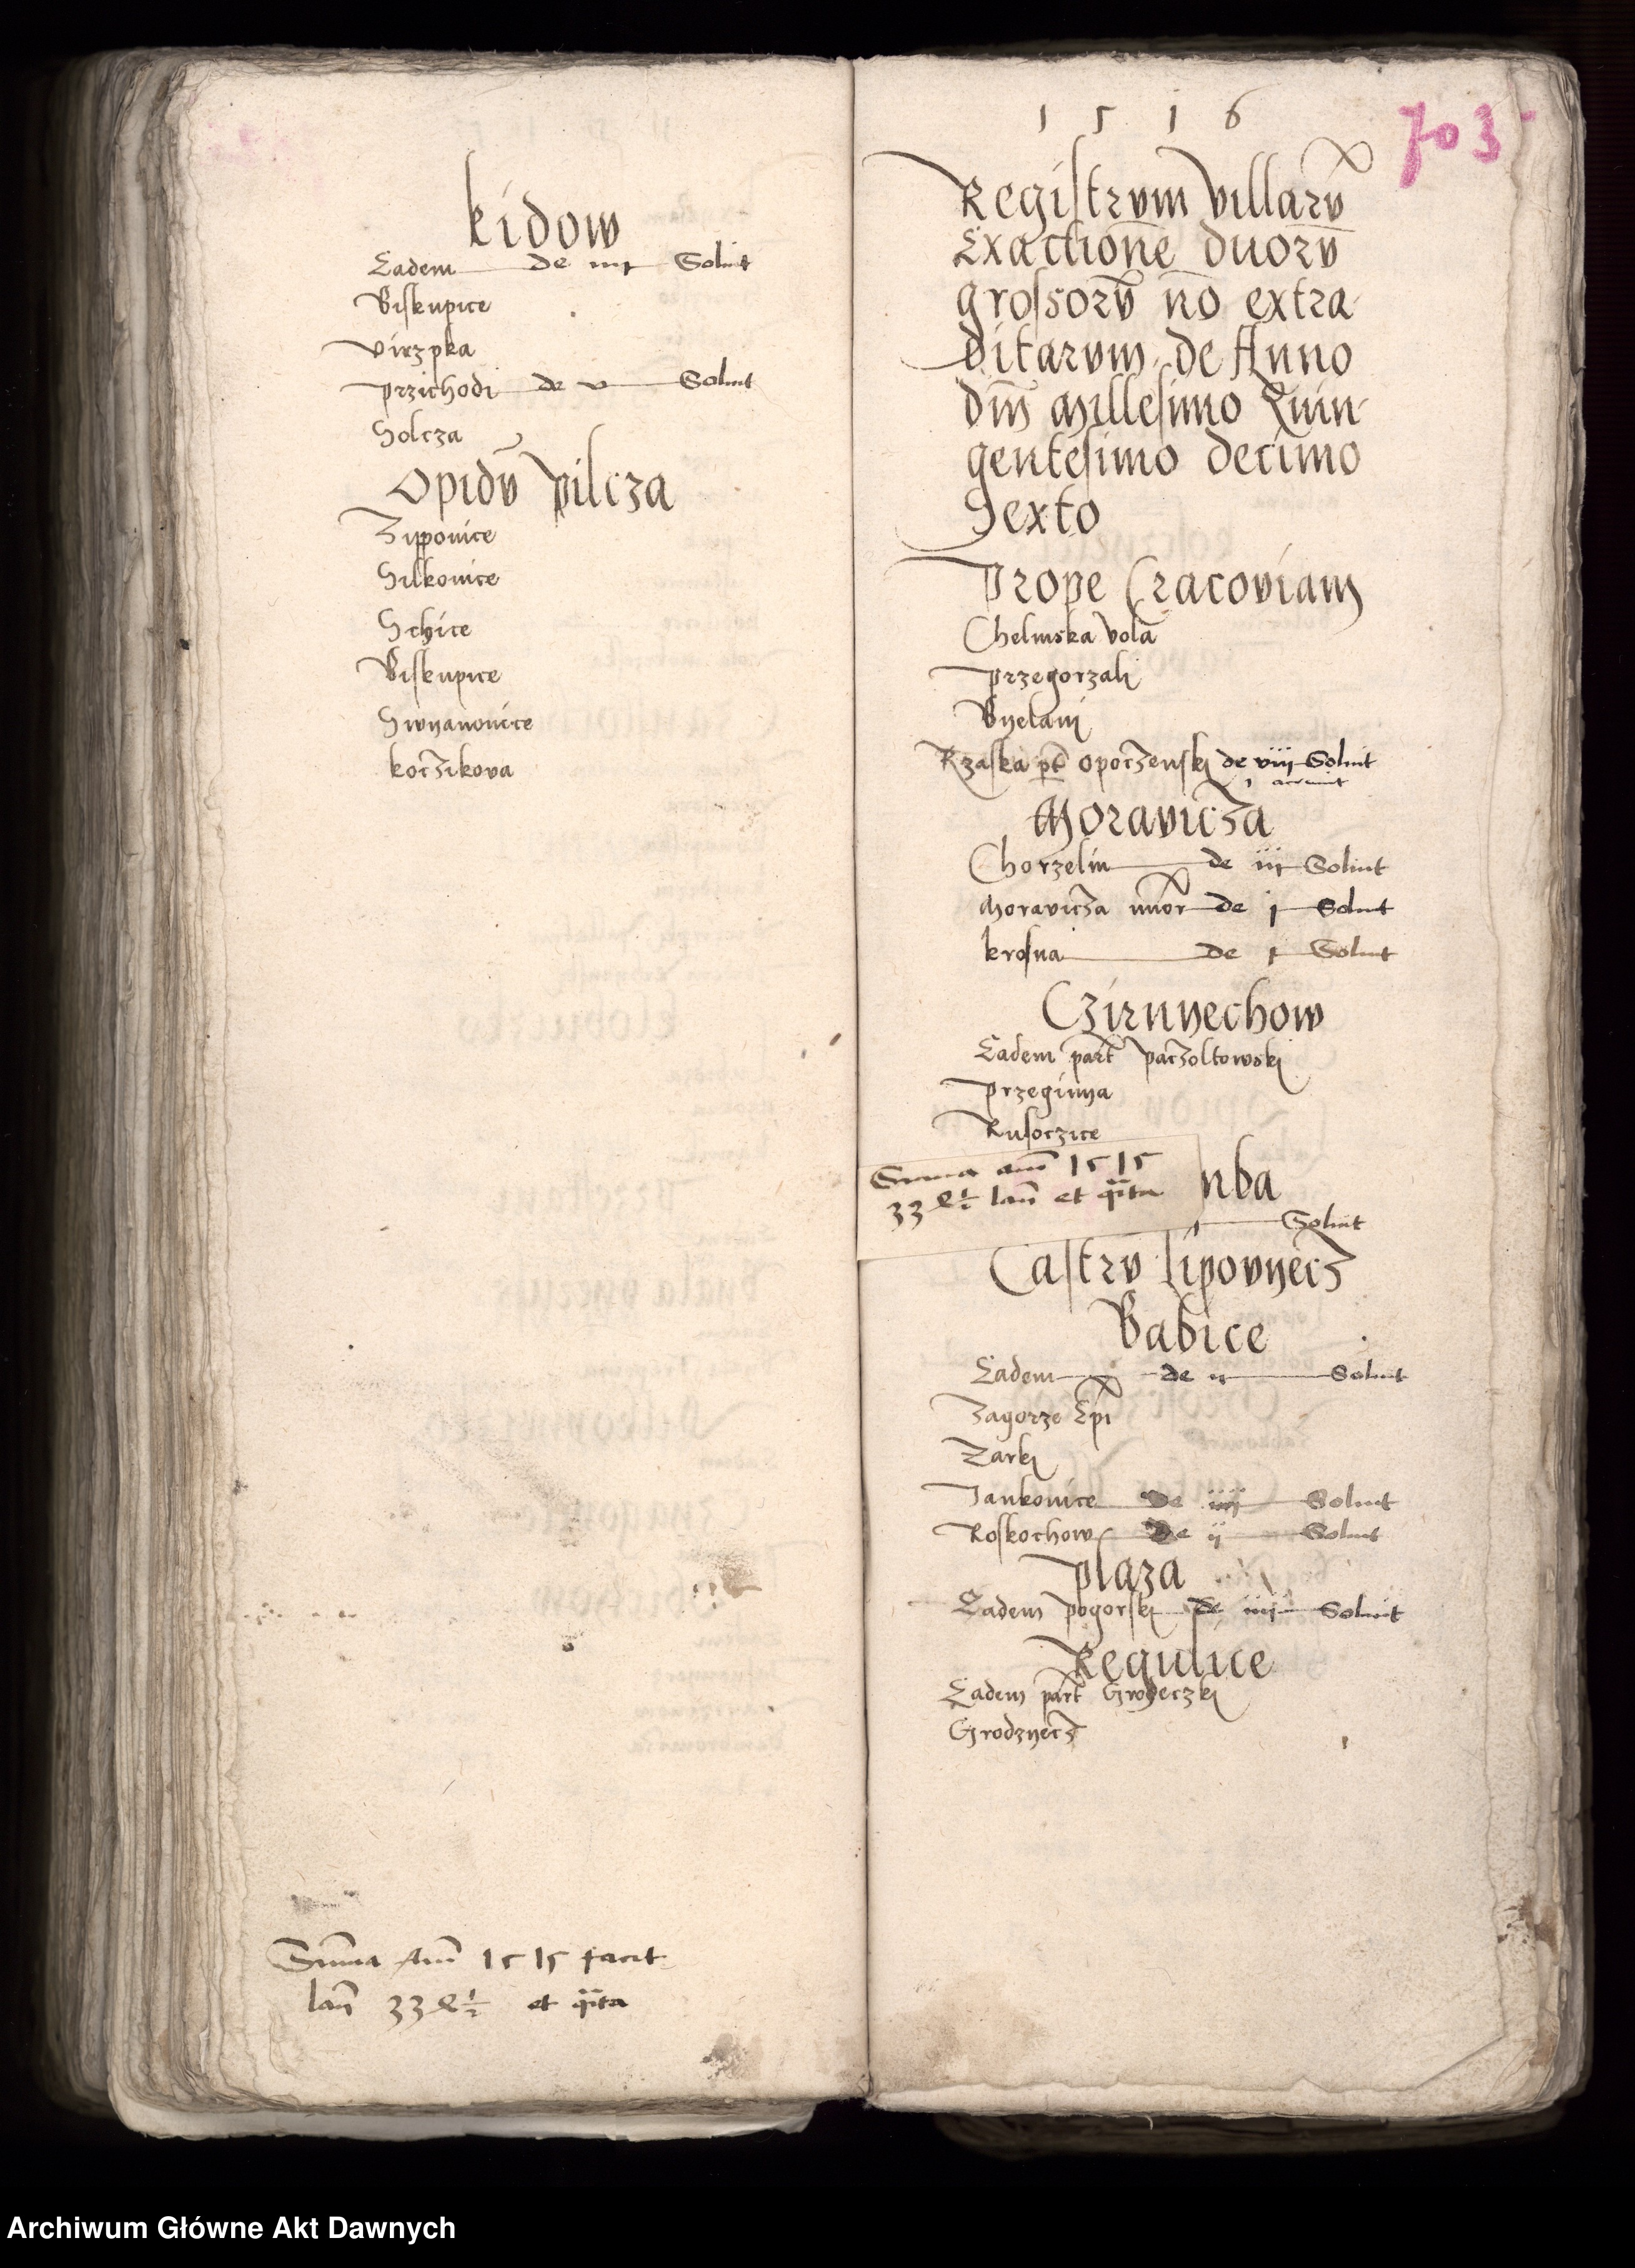 kidow
Eadem de iiij Solvit
Biskupice
Virzpka
Przichodi de v Solvit
Solcza
Opidu Pilcza
Zipponice
Silkonice
Schice
Biskupice
Swynanovice
koczikova
Suma Anni 1515 facit
lan 33 & ½ et qrta
1516
703
Registrum Villaru
Exactione duoru
grossoru no extra
ditarum de Anno
Dni Millesimo Quin
gentesimo decimo
Sexto
Prope Cracoviam
Chelmska Vola
Przegorzali
Byelani
Rzaska pt Opoczenski de viij Solvit
Moravicza
Chorzelin de iij Solvit
Moravicza minor de j Solvit
krosna de j Solvit
Czirnyechow
Eadem part Paczoltowski
Przeginya
Rusoczice
Suma anni 1515
33 & ½ lan et qrta
nba
Solvit
Castru Lipovyecz
Babice
Eadem de ij Solvit
Zagorze Epi
Zarki
Jankovice de iiij Solvit
Roskochow de ij Solvit
Plaza
Eadem Pogorski de iiij Solvit
Regulice
Eadem part Groyeczki
Grodzyecz
Archiwum Główne Akt Dawnych